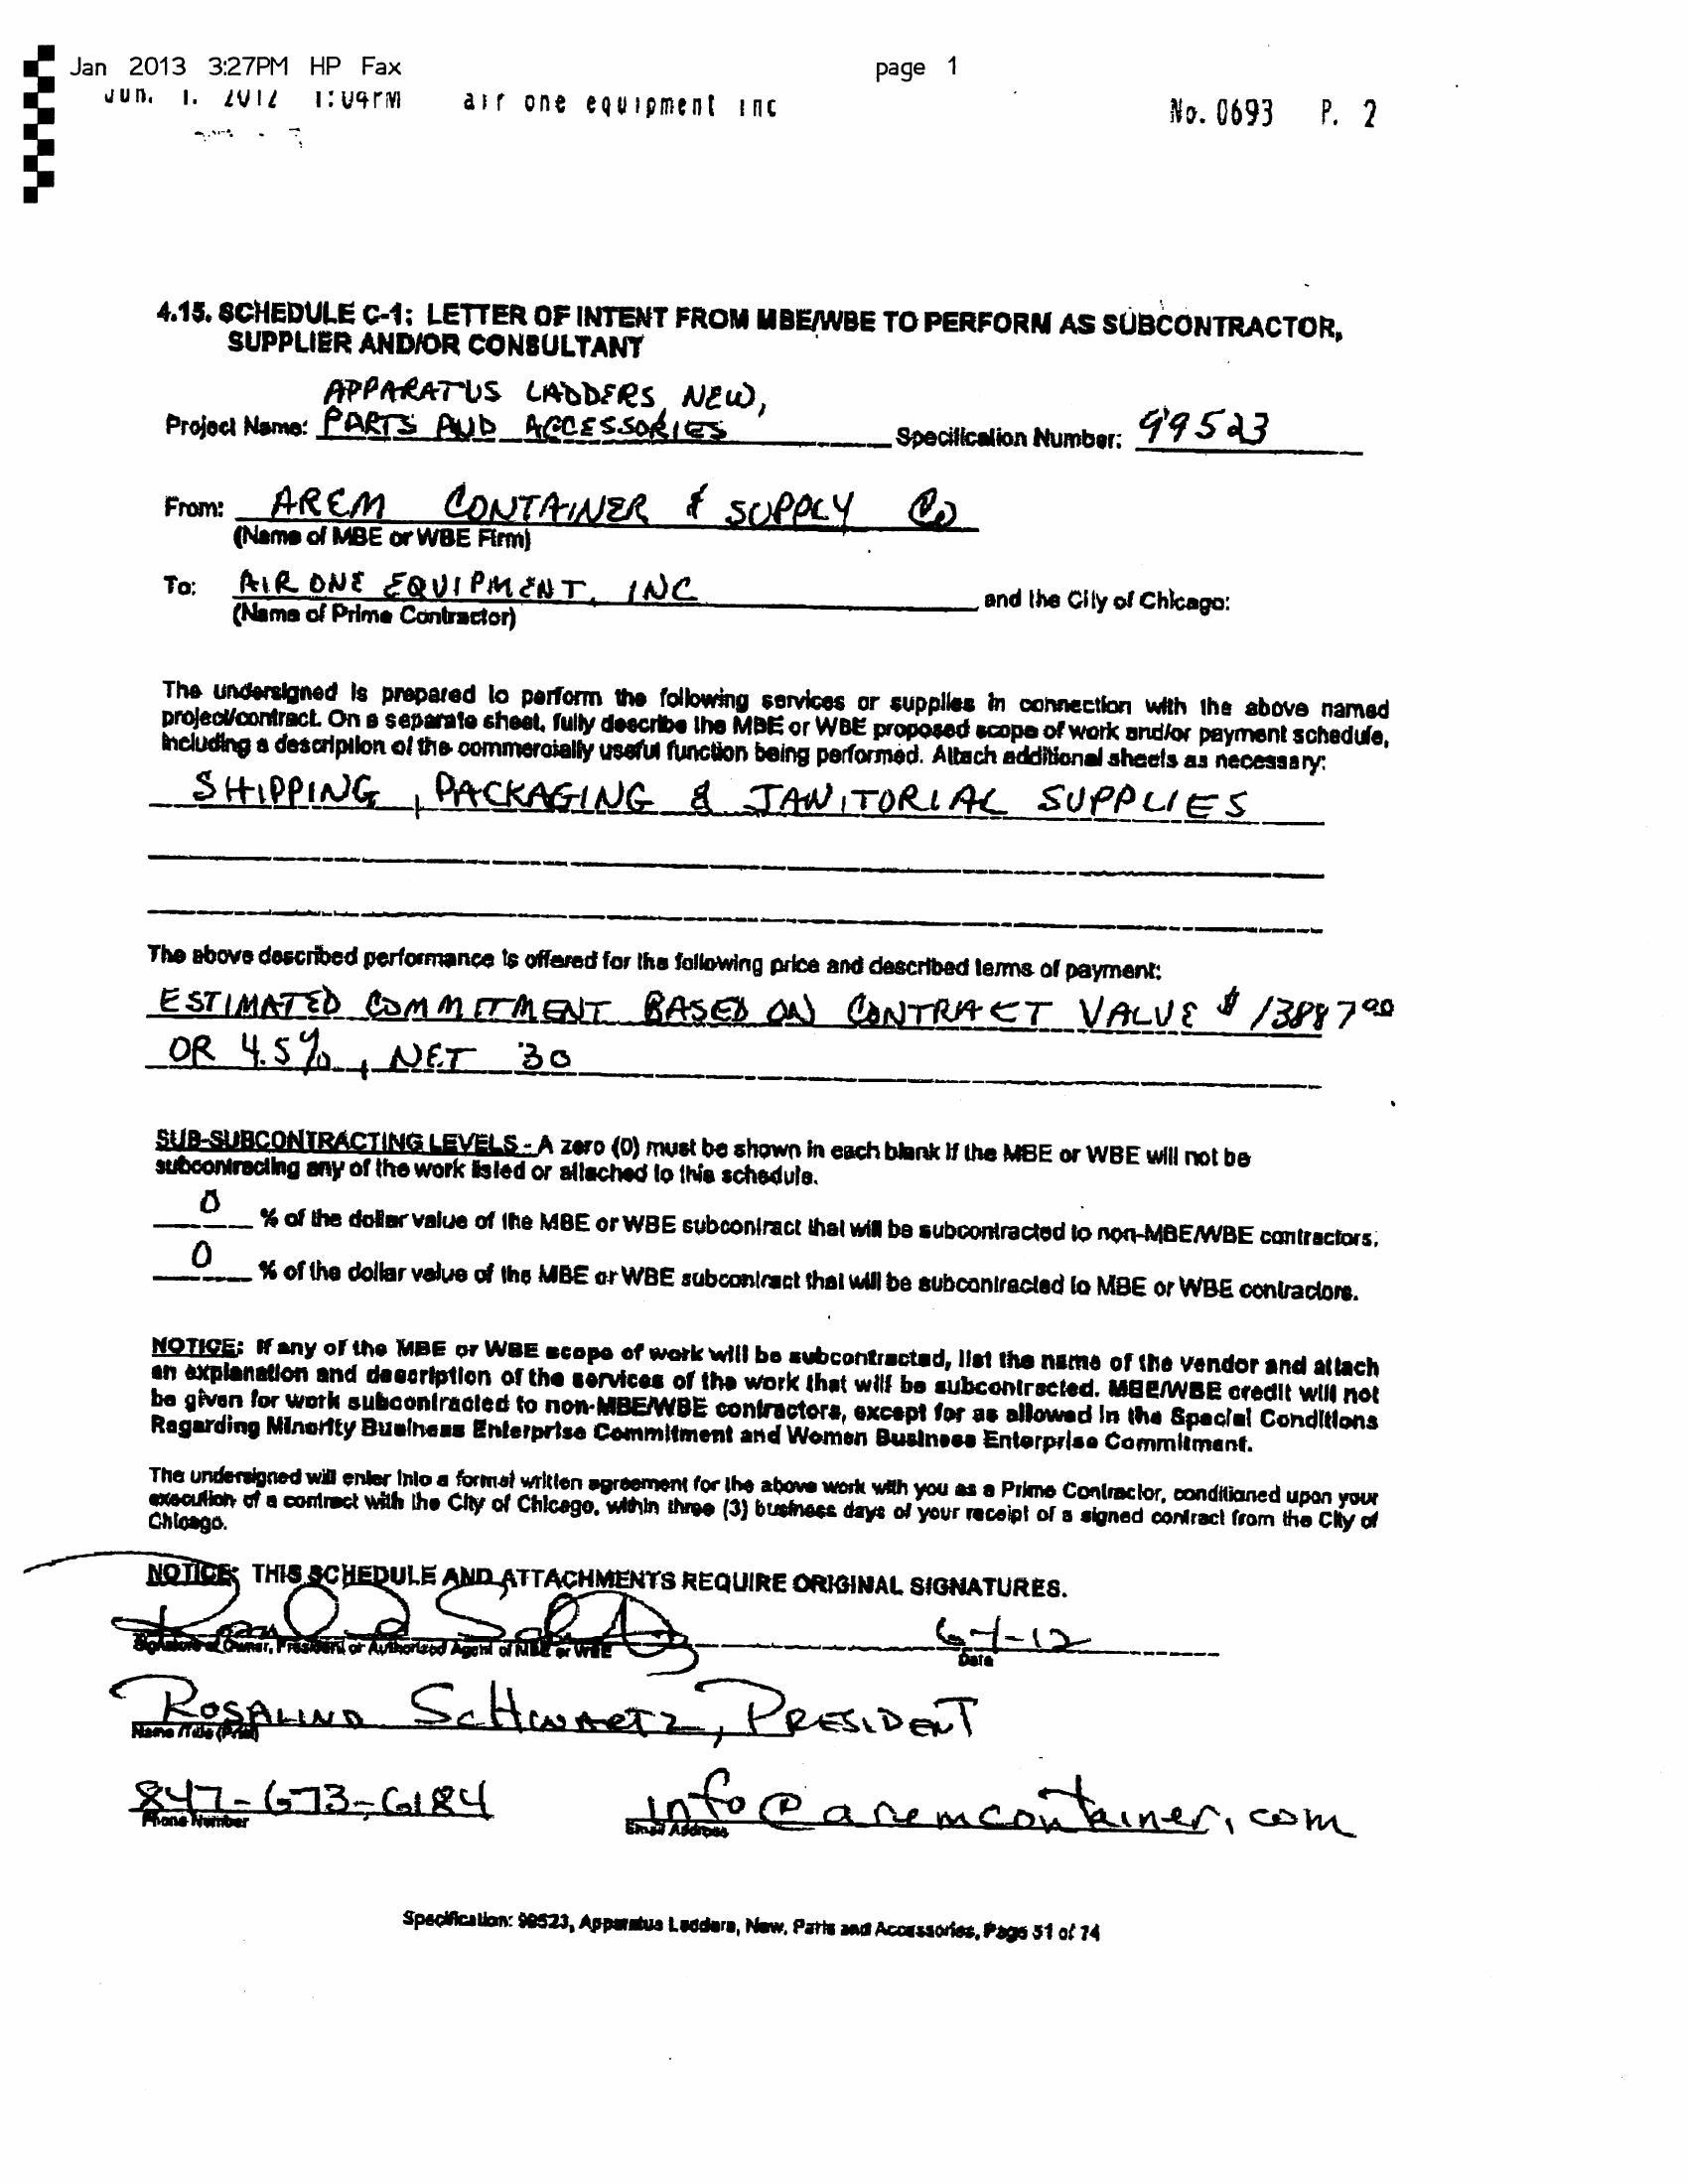 Jan 2013 3:27PM HP Fax page 1
Jun. 1. 2012 1:09PM air one equipment inc No. 0693 P. 2
4.15. SCHEDULE C-1: LETTER OF INTENT FROM MBE/WBE TO PERFORM AS SUBCONTRACTOR,
SUPPLIER AND/OR CONSULTANT
APPARATUS LADDERS, NEW,
Project Name: PARTS AND ACCESSORIES Specification Number: 99523
From: AREM CONTAINER & SUPPLY CO
(Name of MBE or WBE Firm)
To: AIR ONE EQUIPMENT, INC and the City of Chicago:
(Name of Prime Contractor)
The undersigned is prepared to perform the following services or supplies in connection with the above named
project/contract. On a separate sheet, fully describe the MBE or WBE proposed scope of work and/or payment schedule,
including a description of the commercially useful function being performed. Attach additional sheets as necessary:
SHIPPING, PACKAGING & JANITORIAL SUPPLIES
The above described performance is offered for the following price and described terms of payment:
ESTIMATED COMMITMENT BASED ON CONTRACT VALUE $ 13887 00
OR 4.5%, NET 30
SUB-SUBCONTRACTING LEVELS - A zero (0) must be shown in each blank if the MBE or WBE will not be
subcontracting any of the work listed or attached to this schedule.
0 % of the dollar value of the MBE or WBE subcontract that will be subcontracted to non-MBE/WBE contractors.
0 % of the dollar value of the MBE or WBE subcontract that will be subcontracted to MBE or WBE contractors.
NOTICE: If any of the MBE or WBE scope of work will be subcontracted, list the name of the vendor and attach
an explanation and description of the services of the work that will be subcontracted. MBE/WBE credit will not
be given for work subcontracted to non-MBE/WBE contractors, except for as allowed in the Special Conditions
Regarding Minority Business Enterprise Commitment and Women Business Enterprise Commitment.
The undersigned will enter into a formal written agreement for the above work with you as a Prime Contractor, conditioned upon your
execution of a contract with the City of Chicago, within three (3) business days of your receipt of a signed contract from the City of
Chicago.
NOTICE: THIS SCHEDULE AND ATTACHMENTS REQUIRE ORIGINAL SIGNATURES.
6-1-12
Signature of Owner, President or Authorized Agent of MBE or WBE Date
ROSALIND SCHWARTZ, PRESIDENT
Name /Title (Print)
847-673-6184 info@aremcontainer.com
Phone Number Email Address
Specification: 99523, Apparatus Ladders, New, Parts and Accessories, Page 51 of 74